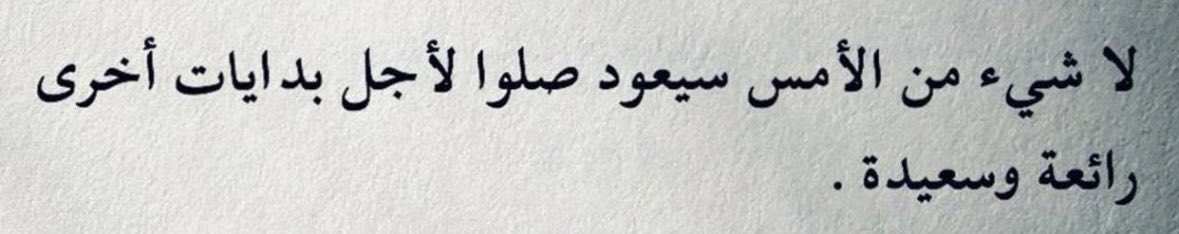 لا شيء من الأمس سيعود صلوا لأجل بدايات أخرى
رائعة وسعيدة .